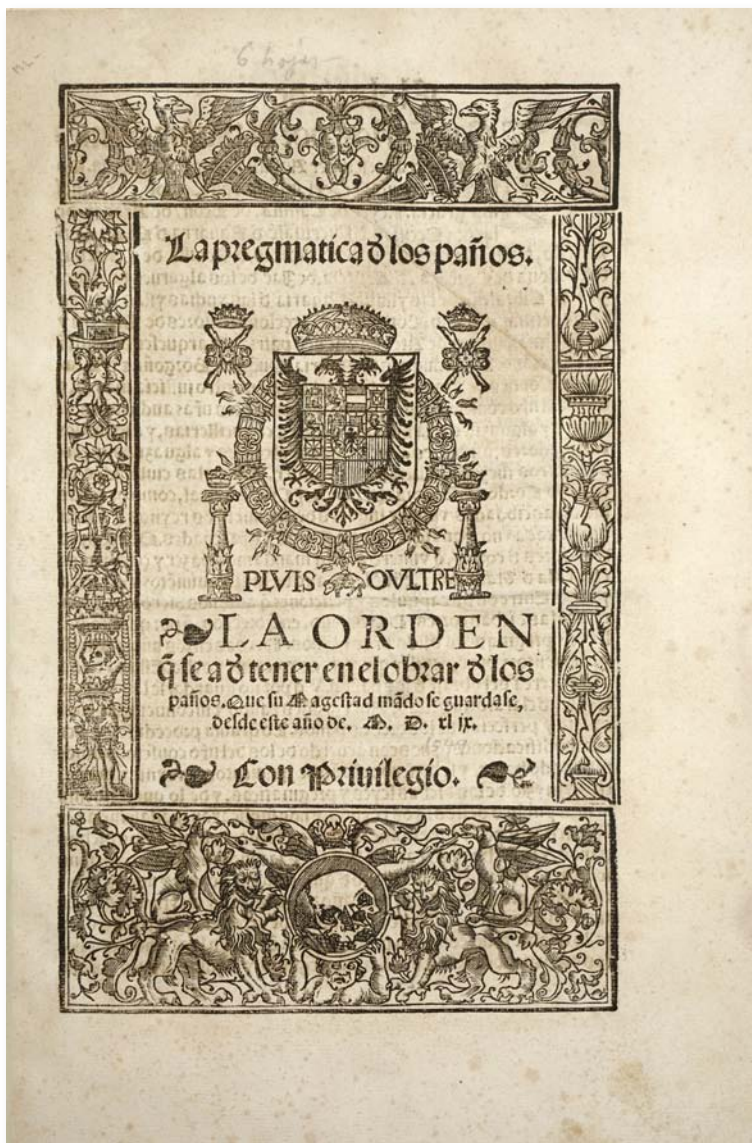 6 hojas
La pregmatica ð los paños.
PLVIS OVLTRE
LA ORDEN
q̃ se a ð tener en el obrar ð los
paños. Que su Magestad mãdo se guardase,
desde este año de. M. D. xl ix.
Con Priuilegio.